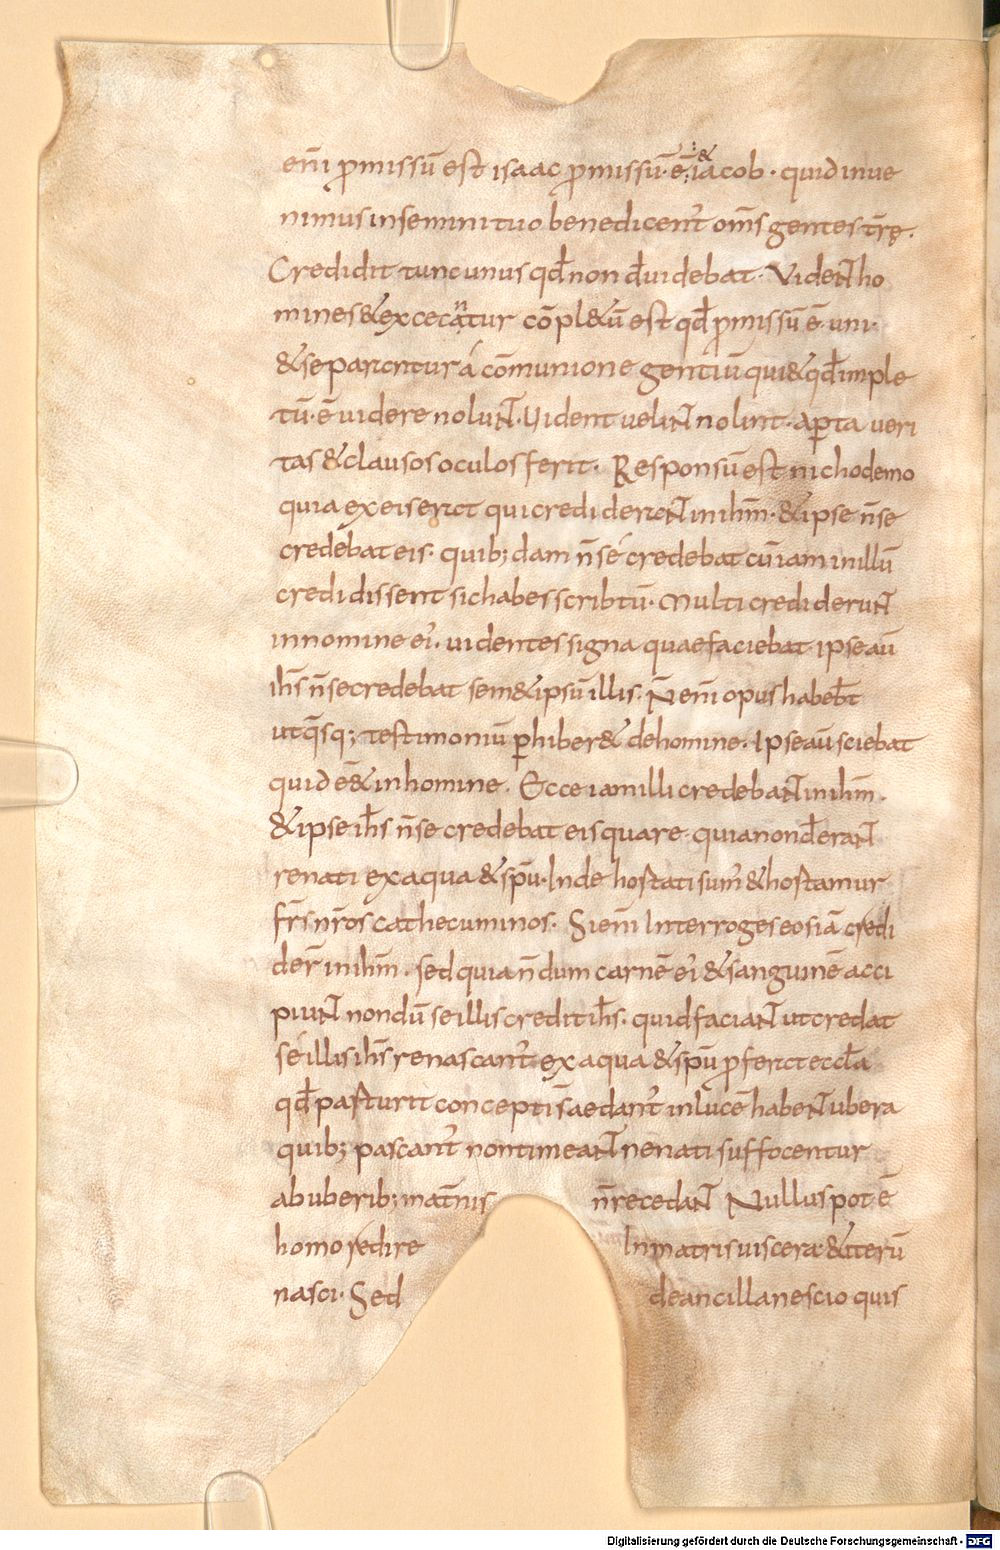 em̄ ꝓmissū est isaac ꝓmissū·ē·&iacob· quid inue
nimus in semini tuo benedicent᷑ om̄s gentes tr̄ę.
Credidit tunc unus qd̄ non du᷑idebat· Vident ho
mines & excecantur cōpl&ū est qd̄ ꝓmissū ē· uni·
& separantur á cōmunione gentiū qui & qd̄ imple
tū·ē uidere nolunt· Vident uelint nolint· aꝑta ueri
tas & clausos oculos ferit· Responsū est nichodemo
quia ex eis erat qui crediderant in ih̄m· & ipse n̄ se
credebat eis· quib; dam n̄ sé credebat cū iam in illū
credidissent sic habes scribtū· Multi crediderunt
in nomine ei᷒· uidentes signa quae faciebat ipse aū
ih̄s n̄ se credebat sem&ipsū illis· N̄ em̄ opus habeb̄t
ut q̄sq; testimoniū ꝑhiber& de homine· Ipse aū sciebat
quid ēet in homine· Ecce iam illi credebant in ih̄m·
& ipse ih̄s n̄ se credebat eis quare quia nond̄ erant
renati ex aqua & sp̄u· Inde hostati sum᷒ & hostamur
fr̄s nr̄os cathecuminos· Si em̄ Interroges eos iā credi
der̄ in ih̄m· sed quia n̄dum carnē ei᷒ & sanguinē acci
piunt nondū se illis credit ih̄s· quid faciant ut credat
sé illis ih̄s renascant᷑ ex aqua & sp̄u ꝓferat eccl̄a
qd̄ pasturit concepti s̄ aedant᷑ in lucē habent ubera
quib; pascant᷑ non timeant ne nati suffocentur
ab uberib; mat̄nis n̄ recedant Nullus pot ē
homo redire In matris uiscera & iterū
nasci· Sed de ancilla nescio quis
Digitalisierung gefördert durch die Deutsche Forschungsgemeinschaft - DFG